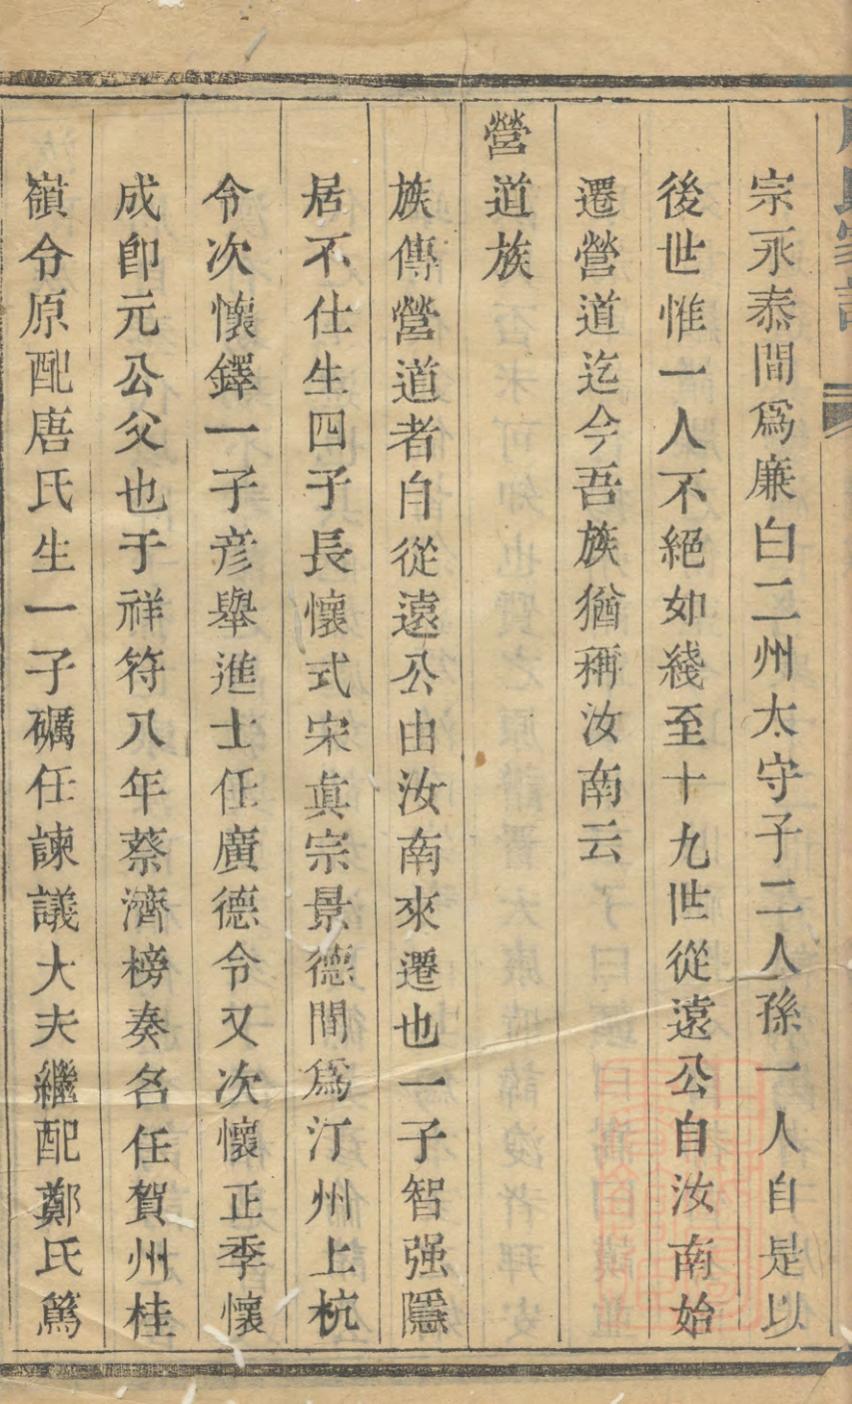 宗永泰間爲廉白二州太守子二人孫一人自是以
後世惟一人不絕如綫至十九世從遠公自汝南始
遷營道迄今吾族猶稱汝南云
營道族
族傳營道者自從遠公由汝南來遷也一子智强隱
居不仕生四子長懷式宋真宗景德間爲汀州上杭
令次懷鐸一子彥舉進士任廣德令又次懷正季懷
成卽元公父也于祥符八年蔡濟榜奏名任賀州桂
嶺令原配唐氏生一子礪任諫議大夫繼配鄭氏篤